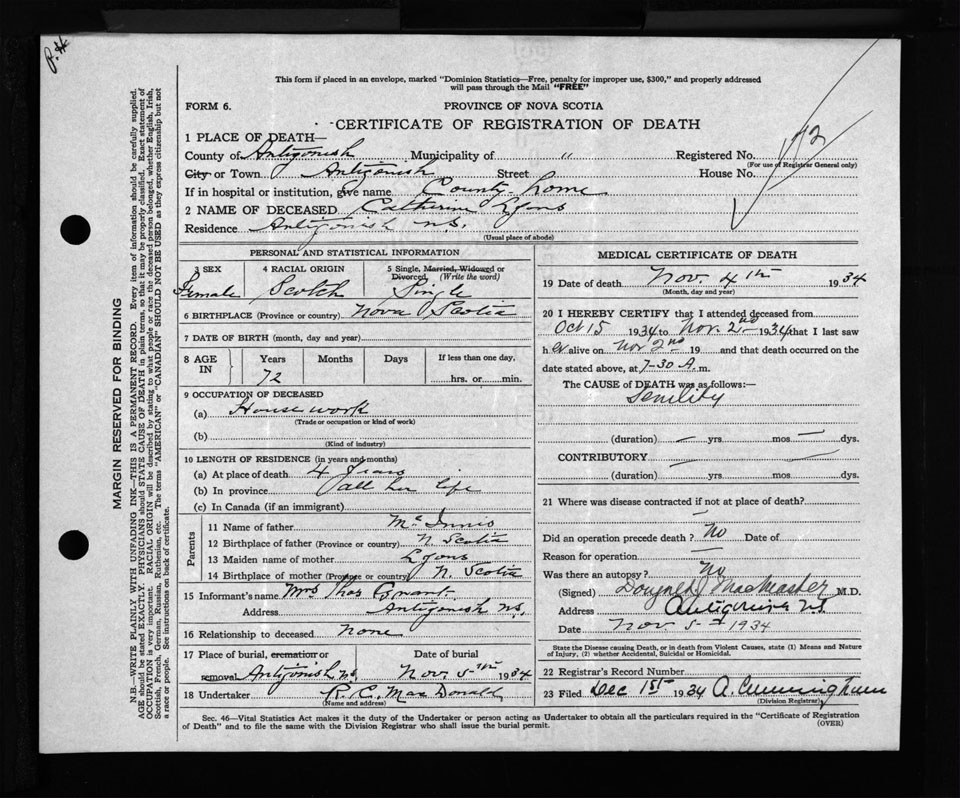 P.H.
This form if placed in an envelope, marked "Dominion Statistics—Free, penalty for improper use, $300," and properly addressed
will pass through the Mail "FREE"
FORM 6.
PROVINCE OF NOVA SCOTIA
CERTIFICATE OF REGISTRATION OF DEATH
1 PLACE OF DEATH—
County of Antigonish Municipality of " Registered No. 172
(For use of Registrar General only)
City or Town Antigonish Street House No.
If in hospital or institution, give name County home
2 NAME OF DECEASED Catherine Lyons
Residence Antigonish N.S.
(Usual place of abode)
PERSONAL AND STATISTICAL INFORMATION
3 SEX
Female
4 RACIAL ORIGIN
Scotch
5 Single, Married, Widowed or
Divorced, (Write the word)
Single
6 BIRTHPLACE (Province or country) Nova Scotia
7 DATE OF BIRTH (month, day and year)
8 AGE IN
Years Months Days If less than one day,
72 hrs. or min.
9 OCCUPATION OF DECEASED
(a) House work
(Trade or occupation or kind of work)
(b)
(Kind of industry)
10 LENGTH OF RESIDENCE (in years and months)
(a) At place of death 4 years
(b) In province all her life
(c) In Canada (if an immigrant)
Parents
11 Name of father McInnis
12 Birthplace of father (Province or country) N Scotia
13 Maiden name of mother Lyons
14 Birthplace of mother (Province or country) N. Scotia
15 Informant's name Mrs Thos Grant
Address Antigonish N.S.
16 Relationship to deceased none
17 Place of burial, cremation or Date of burial
removal Antigonish N.S. Nov. 5th 1934
18 Undertaker R. C. MacDonald
(Name and address)
MEDICAL CERTIFICATE OF DEATH
19 Date of death Nov. 4th 1934
(Month, day and year)
20 I HEREBY CERTIFY that I attended deceased from
Oct 15 1934 to Nov. 2nd 1934 that I last saw
her alive on Nov 2nd 19 and that death occurred on the
date stated above, at 7-30 A.m.
The CAUSE OF DEATH was as follows:—
Senility
(duration) — yrs. mos. — dys.
CONTRIBUTORY —
(duration) — yrs. mos. — dys.
21 Where was disease contracted if not at place of death?
—
Did an operation precede death? No Date of
Reason for operation —
Was there an autopsy? No
(Signed) M.D.
Address Antigonish N.S.
Date Nov 5th 1934
State the Disease causing Death, or in death from Violent Causes, state (1) Means and Nature
of Injury, (2) whether Accidental, Suicidal or Homicidal.
22 Registrar's Record Number
23 Filed Dec 1st 1934 A. Cunningham
(Division Registrar)
Sec. 46—Vital Statistics Act makes it the duty of the Undertaker or person acting as Undertaker to obtain all the particulars required in the "Certificate of Registration
of Death" and to file the same with the Division Registrar who shall issue the burial permit. (OVER)
MARGIN RESERVED FOR BINDING
N.B.—WRITE PLAINLY WITH UNFADING INK—THIS IS A PERMANENT RECORD. Every item of information should be carefully supplied.
AGE should be stated EXACTLY. PHYSICIANS should STATE CAUSE OF DEATH in plain terms, so that it may be properly classified. Exact statement of
OCCUPATION is very important. RACIAL ORIGIN will be described by stating to what people or race the deceased person belonged, whether English, Irish,
Scottish, French, German, Russian, Ruthenian, etc. The terms "AMERICAN" or "CANADIAN" SHOULD NOT BE USED as they express citizenship but not
a race or people. See instructions on back of certificate.